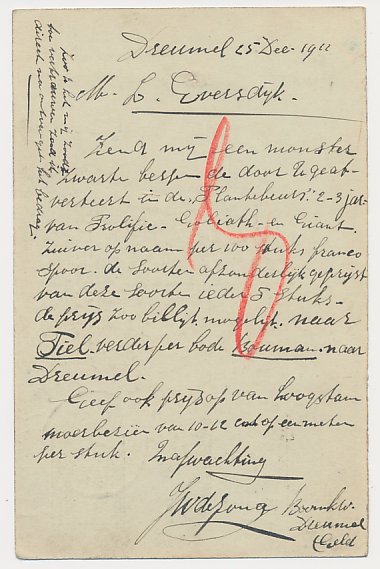 Dreumel 25 Dec. 1911
Mr. L. Eversdijk.
Zend mij een monster
zwarte bessen de door U gead-
verteert in de "Plantebeurs" 2-3 jar.
van Prolific - Goliath - en Giant
zuiver op naam per 100 stuks franco
spoor. de soorten afzonderlijk geprijst
van deze soorten ieder 5 stuks -
de prijs zoo billijk mogelijk. naar
Tiel. verder per bode Bouman. naar
Dreumel.
Geef ook prijs op van hoogstam
moerbeziën van 10-12 cent op een meter
per stuk. Inafwachting
JvdeJong Boomkw.
Dreumel
Geld
Zoo U het mij zoudt
toevertrouwen zend ik
direct na ontvangst het bedrag.